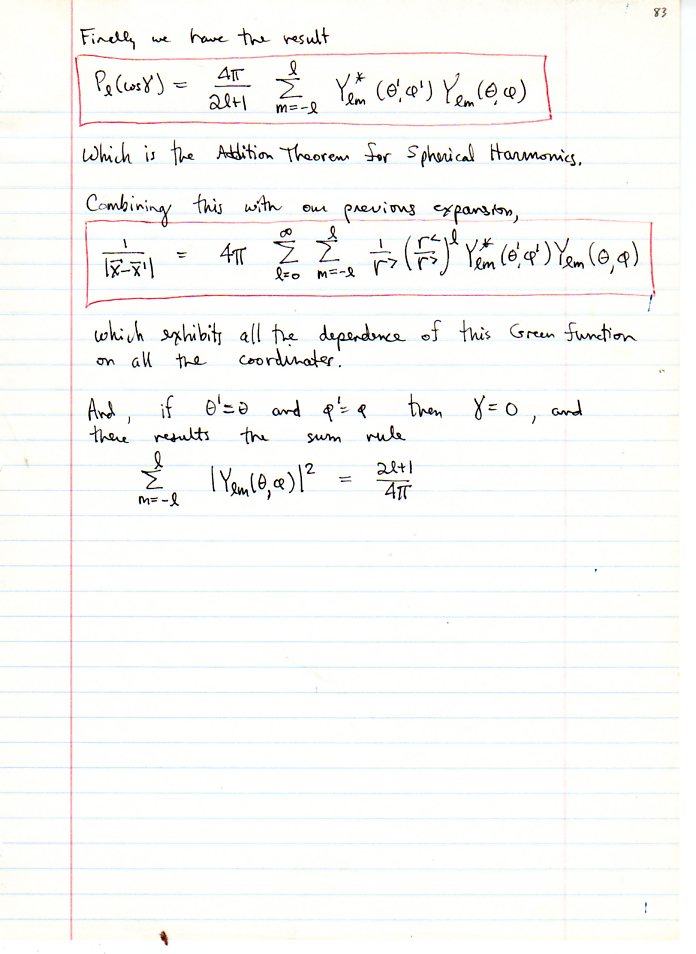 83
Finally we have the result
Pℓ(cosγ) = 4π/(2ℓ+1) Σ_{m=-ℓ}^{ℓ} Y*ℓm(θ',φ') Yℓm(θ,φ)
Which is the Addition Theorem for Spherical Harmonics.
Combining this with our previous expansion,
1/|x⃗-x⃗'| = 4π Σ_{ℓ=0}^{∞} Σ_{m=-ℓ}^{ℓ} 1/r> (r</r>)^ℓ Y*ℓm(θ',φ') Yℓm(θ,φ)
which exhibits all the dependence of this Green function
on all the coordinates.
And, if θ'=θ and φ'=φ then γ=0, and
there results the sum rule
Σ_{m=-ℓ}^{ℓ} |Yℓm(θ,φ)|² = (2ℓ+1)/4π